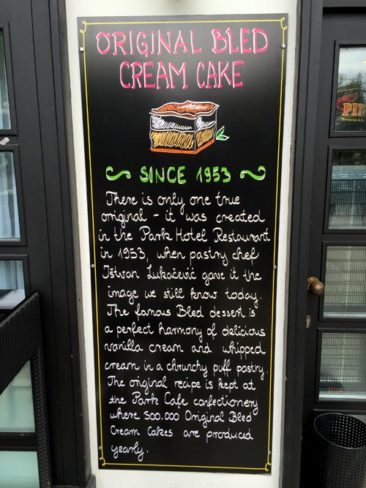 ORIGINAL BLED
CREAM CAKE
SINCE 1953
There is only one true
original - it was created
in the Park Hotel Restaurant
in 1953, when pastry chef
Istvan Lukačević gave it the
image we still know today.
The famous Bled dessert is
a perfect harmony of delicious
vanilla cream and whipped
cream in a chrunchy puff pastry.
The original recipe is kept at
the Park Cafe confectionery
where 500.000 Original Bled
Cream Cakes are produced
yearly.